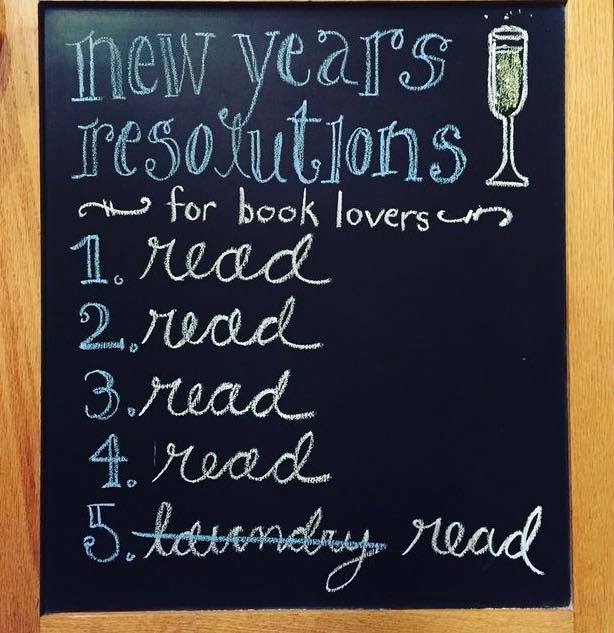 new years
resolutions
for book lovers
1. read
2. read
3. read
4. read
5. laundry read